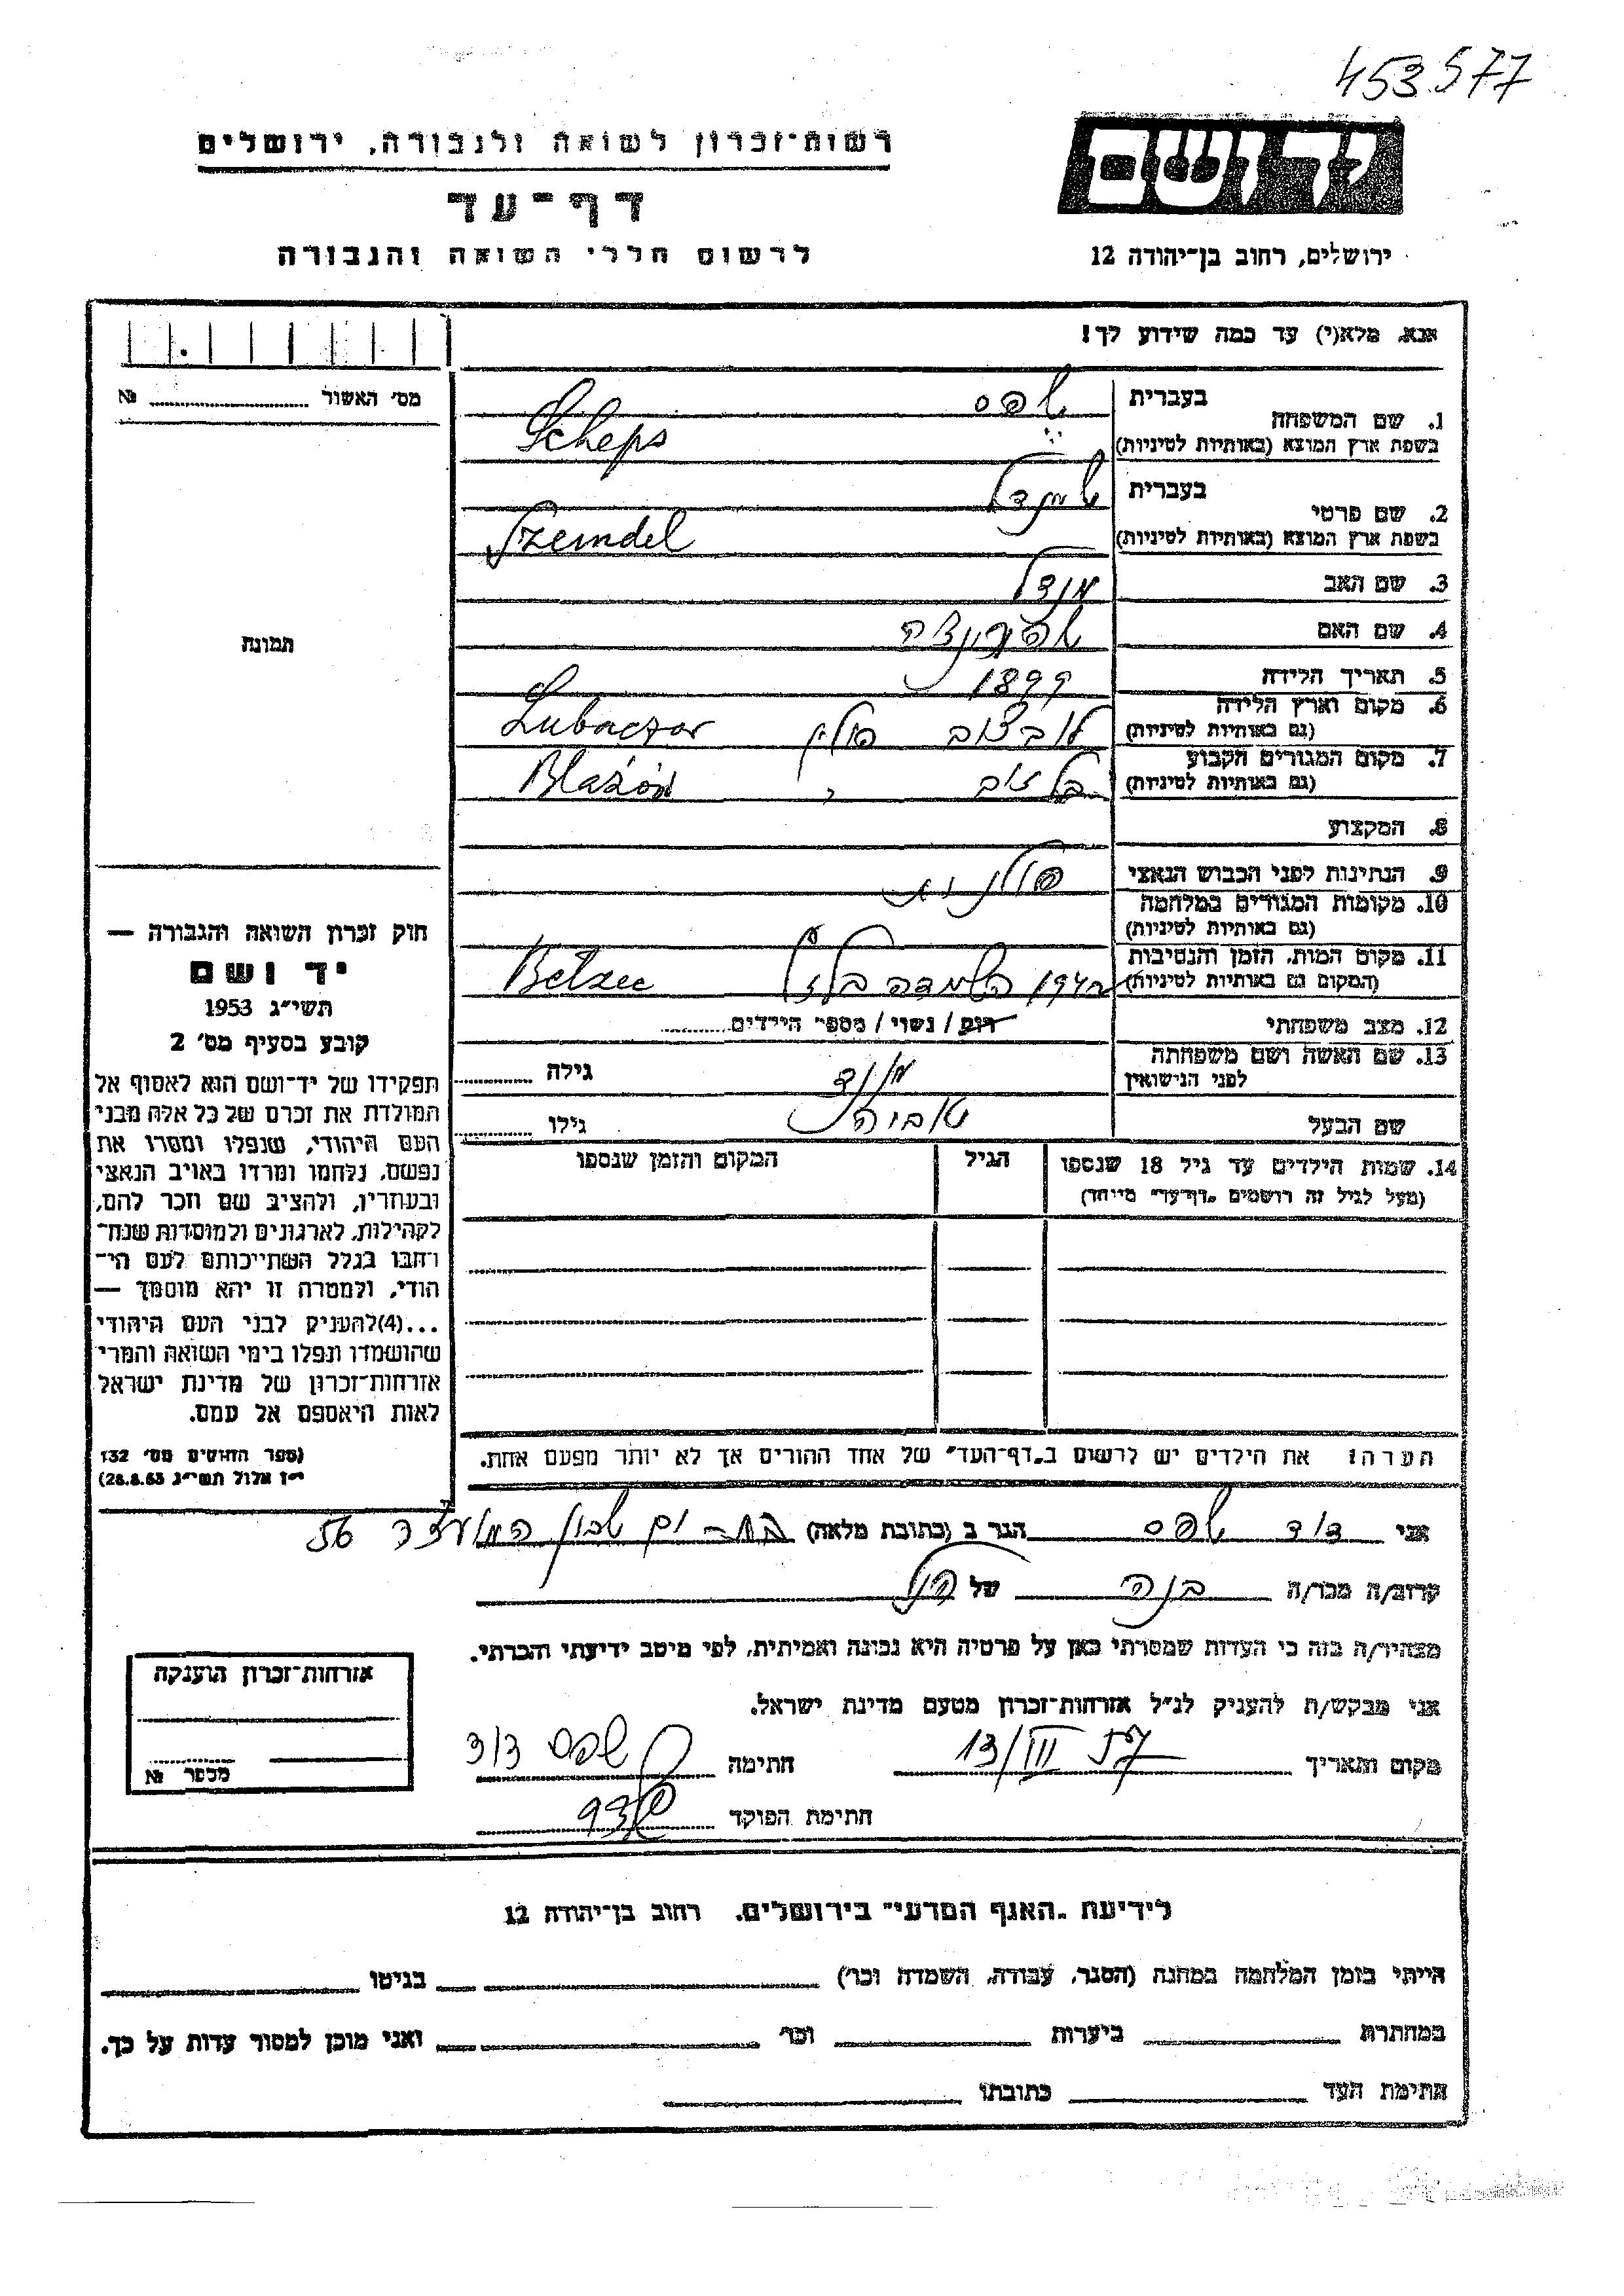 453.577
יד ושם
רשות־זכרון לשואה ולגבורה, ירושלים
דף־עד
לרשום חללי השואה והגבורה
ירושלים, רחוב בן־יהודה 12
אנא, מלא(י) עד כמה שידוע לך!
מס׳ האשור № 
1. שם המשפחה
בעברית שפס
בשפת ארץ המוצא (באותיות לטיניות) Scheps
2. שם פרטי
בעברית שמנדל
בשפת ארץ המוצא (באותיות לטיניות) Szemdel
3. שם האב מנדל
4. שם האם
5. תאריך הלידה 1899
6. מקום וארץ הלידה
(גם באותיות לטיניות) לובצוב פולין Lubaczor
7. מקום המגורים הקבוע
(גם באותיות לטיניות) בלזוב
8. המקצוע
9. הנתינות לפני הכבוש הנאצי פולנית
10. מקומות המגורים במלחמה
(גם באותיות לטיניות)
11. מקום המות, הזמן והנסיבות
(המקום גם באותיות לטיניות) 1942 Betzec
12. מצב משפחתי רוק / נשוי / מספר הילדים
13. שם האשה ושם משפחתה
לפני הנישואין גילה
שם הבעל טוביה גילו
14. שמות הילדים עד גיל 18 שנספו
(מעל לגיל זה רושמים „דף־עד״ מייוחד)
הגיל
המקום והזמן שנספו
הערה: את הילדים יש לרשום ב„דף־העד״ של אחד ההורים אך לא יותר מפעם אחת.
תמונה
חוק זכרון השואה והגבורה —
יד ושם
תשי״ג 1953
קובע בסעיף מס׳ 2
תפקידו של יד־ושם הוא לאסוף אל
המולדת את זכרם של כל אלה מבני
העם היהודי, שנפלו ומסרו את
נפשם, נלחמו ומרדו באויב הנאצי
ובעוזריו, ולהציב שם וזכר להם,
לקהילות, לארגונים ולמוסדות שנח־
רחבו בגלל השתייכותם לעם הי־
הודי, ולמטרה זו יהא מוסמך —
...(4)להעניק לבני העם היהודי
שהושמדו ונפלו בימי השואה והמרי
אזרחות־זכרון של מדינת ישראל
לאות היאספם אל עמם.
(ספר החוקים מס׳ 132
י״ז אלול תשי״ג 28.8.53)
אני דוד שפס הגר ב (כתובת מלאה) בת־ים 56
קרוב/ה מכר/ה בנה של הנ״ל
מצהיר/ה בזה כי העדות שמסרתי כאן על פרטיה היא נכונה ואמיתית, לפי מיטב ידיעתי והכרתי.
אני מבקש/ת להעניק לנ״ל אזרחות־זכרון מטעם מדינת ישראל.
מקום ותאריך 13/III חתימה שפס דוד
חתימת הפוקד
אזרחות־זכרון הוענקה
מספר №
לידיעת „האגף המדעי״ בירושלים, רחוב בן־יהודה 12
הייתי בזמן המלחמה במחנה (הסגר, עבודה, השמדה וכו׳) בגיטו
במחתרת ביערות וכו׳ ואני מוכן למסור עדות על כך.
חתימת העד כתובתו